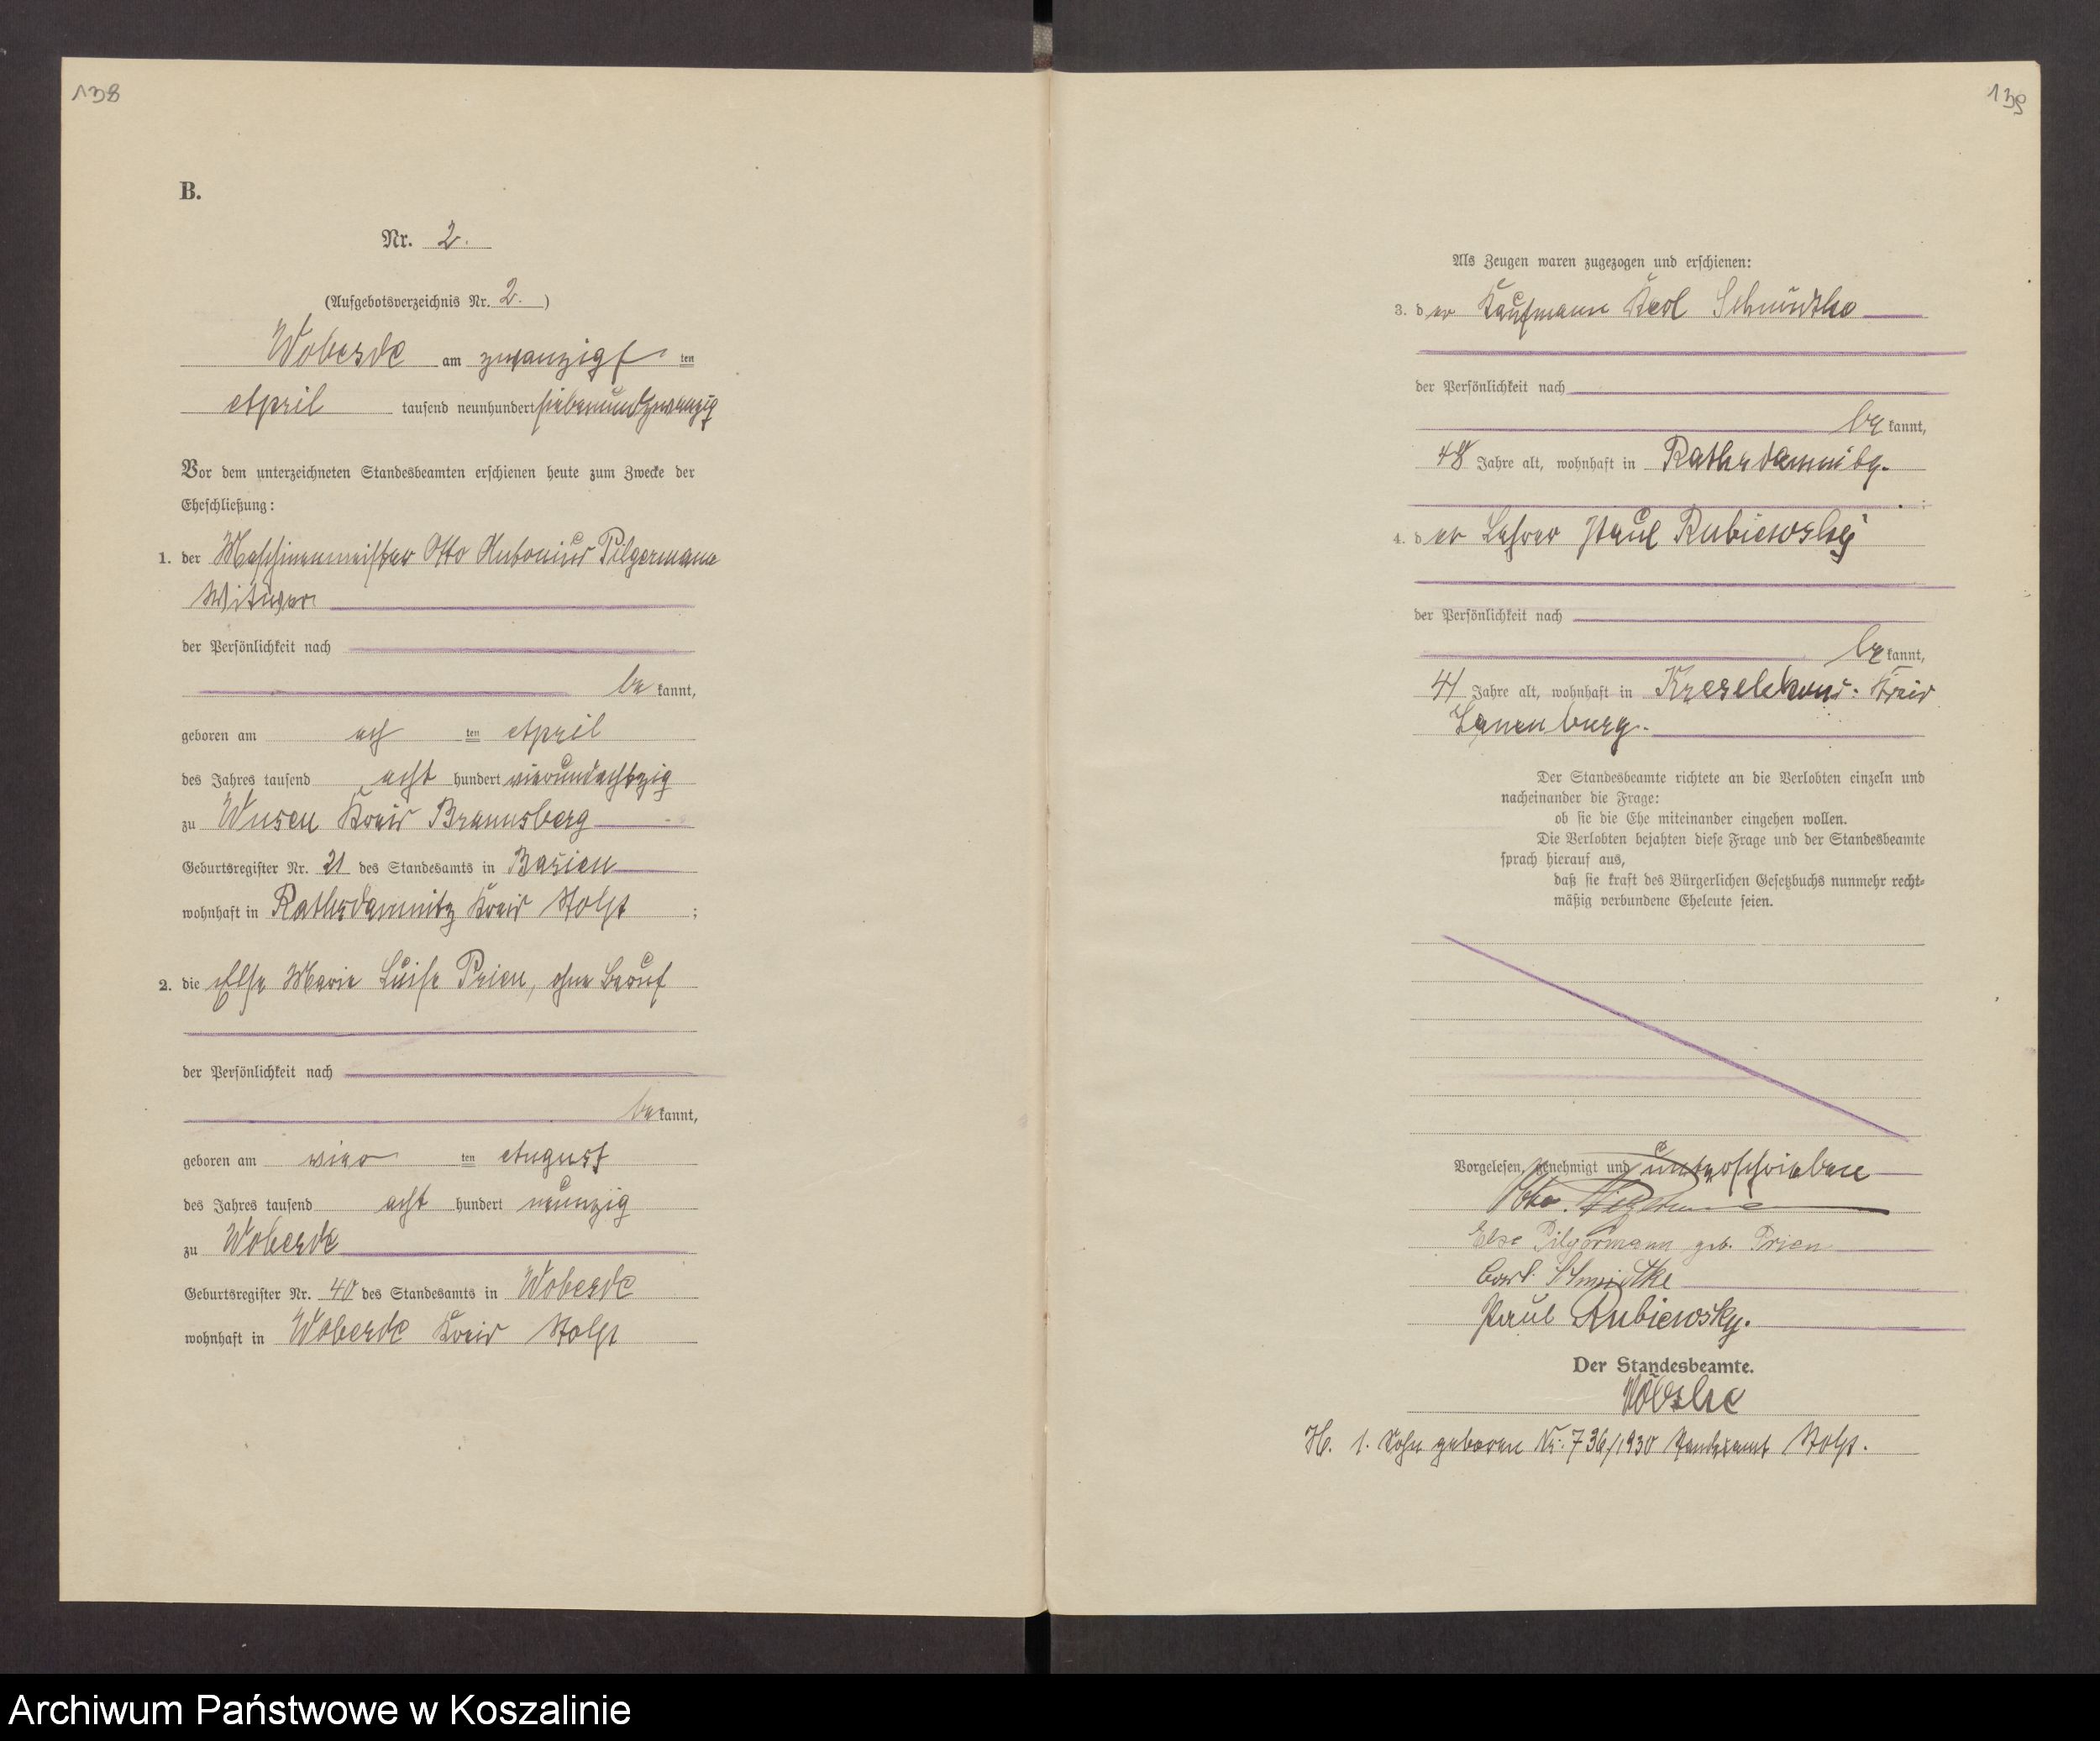 138
B.
Nr. 2.
(Aufgebotsverzeichnis Nr. 2. )
Wobesde am zwanzigsten
April tausend neunhundert siebenundzwanzig
Vor dem unterzeichneten Standesbeamten erschienen heute zum Zwecke der
Eheschließung:
1. der Maschinenmeister Otto Antonius Pilgermann
Witwer
der Persönlichkeit nach
be kannt,
geboren am ach ten April
des Jahres tausend acht hundert vierundachtzig
zu Wusen Kreis Braunsberg
Geburtsregister Nr. 21 des Standesamts in Basien
wohnhaft in Rathsdamnitz Kreis Stolp ;
2. die Else Marie Luise Prien, ohne Beruf
der Persönlichkeit nach
be kannt,
geboren am vier ten August
des Jahres tausend acht hundert neunzig
zu Wobesde
Geburtsregister Nr. 40 des Standesamts in Wobesde
wohnhaft in Wobesde Kreis Stolp
139
Als Zeugen waren zugezogen und erschienen:
3. der Kaufmann Karl
der Persönlichkeit nach
be kannt,
48 Jahre alt, wohnhaft in Rathsdamnitz.
;
4. der Lehrer Paul Rubiewsky
der Persönlichkeit nach
be kannt,
41 Jahre alt, wohnhaft in Kreis
Lauenburg.
Der Standesbeamte richtete an die Verlobten einzeln und
nacheinander die Frage:
ob sie die Ehe miteinander eingehen wollen.
Die Verlobten bejahten diese Frage und der Standesbeamte
sprach hierauf aus,
daß sie kraft des Bürgerlichen Gesetzbuchs nunmehr recht-
mäßig verbundene Eheleute seien.
Vorgelesen, genehmigt und unterschrieben
Otto Pilgermann
Else Pilgermann geb. Prien
Carl Schmidtke
Paul Rubiewsky.
Der Standesbeamte.
H. 1. Sohn geboren Nr: 736/1930 Standesamt Stolp.
Archiwum Państwowe w Koszalinie